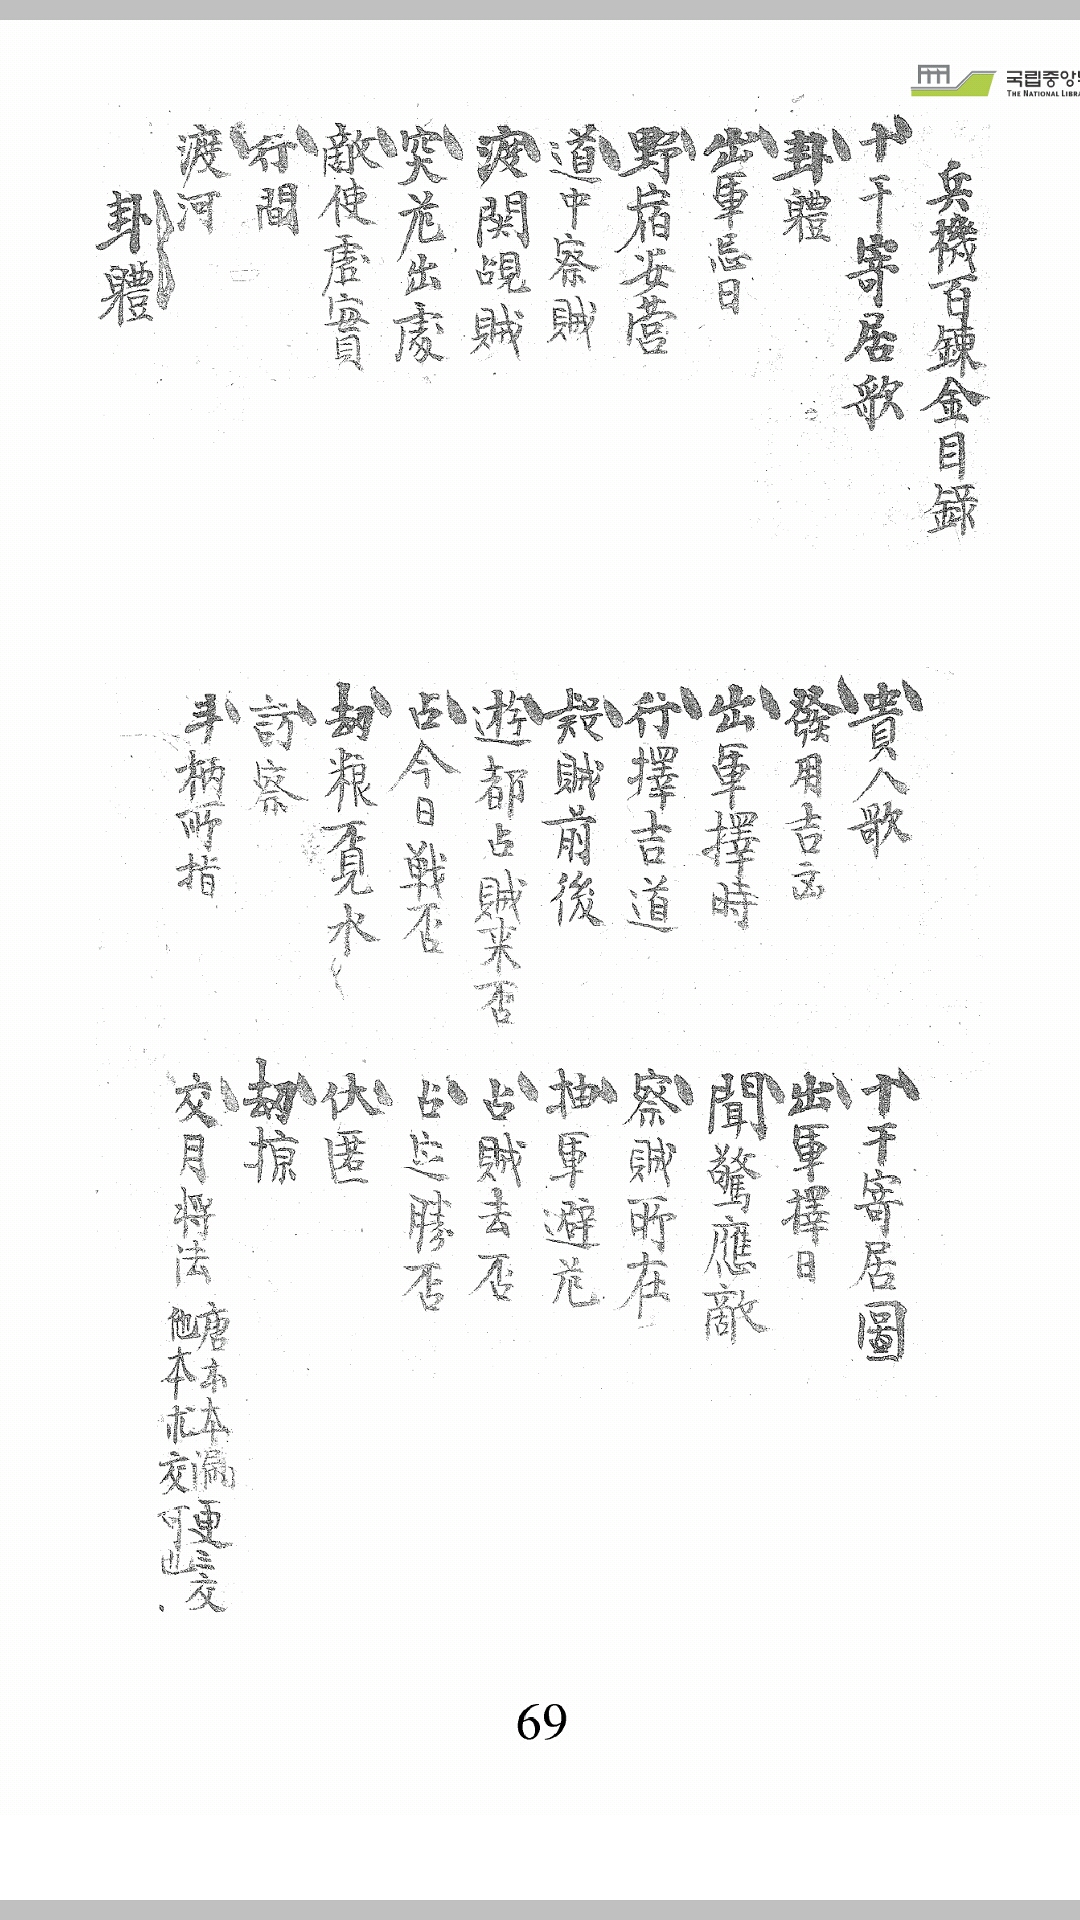 국립중앙
THE NATIONAL LIBRA
兵機百鍊金目錄
十干寄居歌
貴人歌
十干寄居圖
卦體
發用吉凶
出軍擇日
出軍忌日
出軍擇時
聞驚應敵
野宿安營
行擇吉道
察賊所在
道中察賊
疑賊前後
抽軍避厄
渡関覘賊
遊都占賊来否
占賊去否
突厄出處
占今日戰否
占定勝否
敵使虛實
劫粮覓水
伏匿
行間
訪察
劫掠
渡河
斗柄所指
交月将法
唐本本漏更三交
他本求交可也
卦體
69